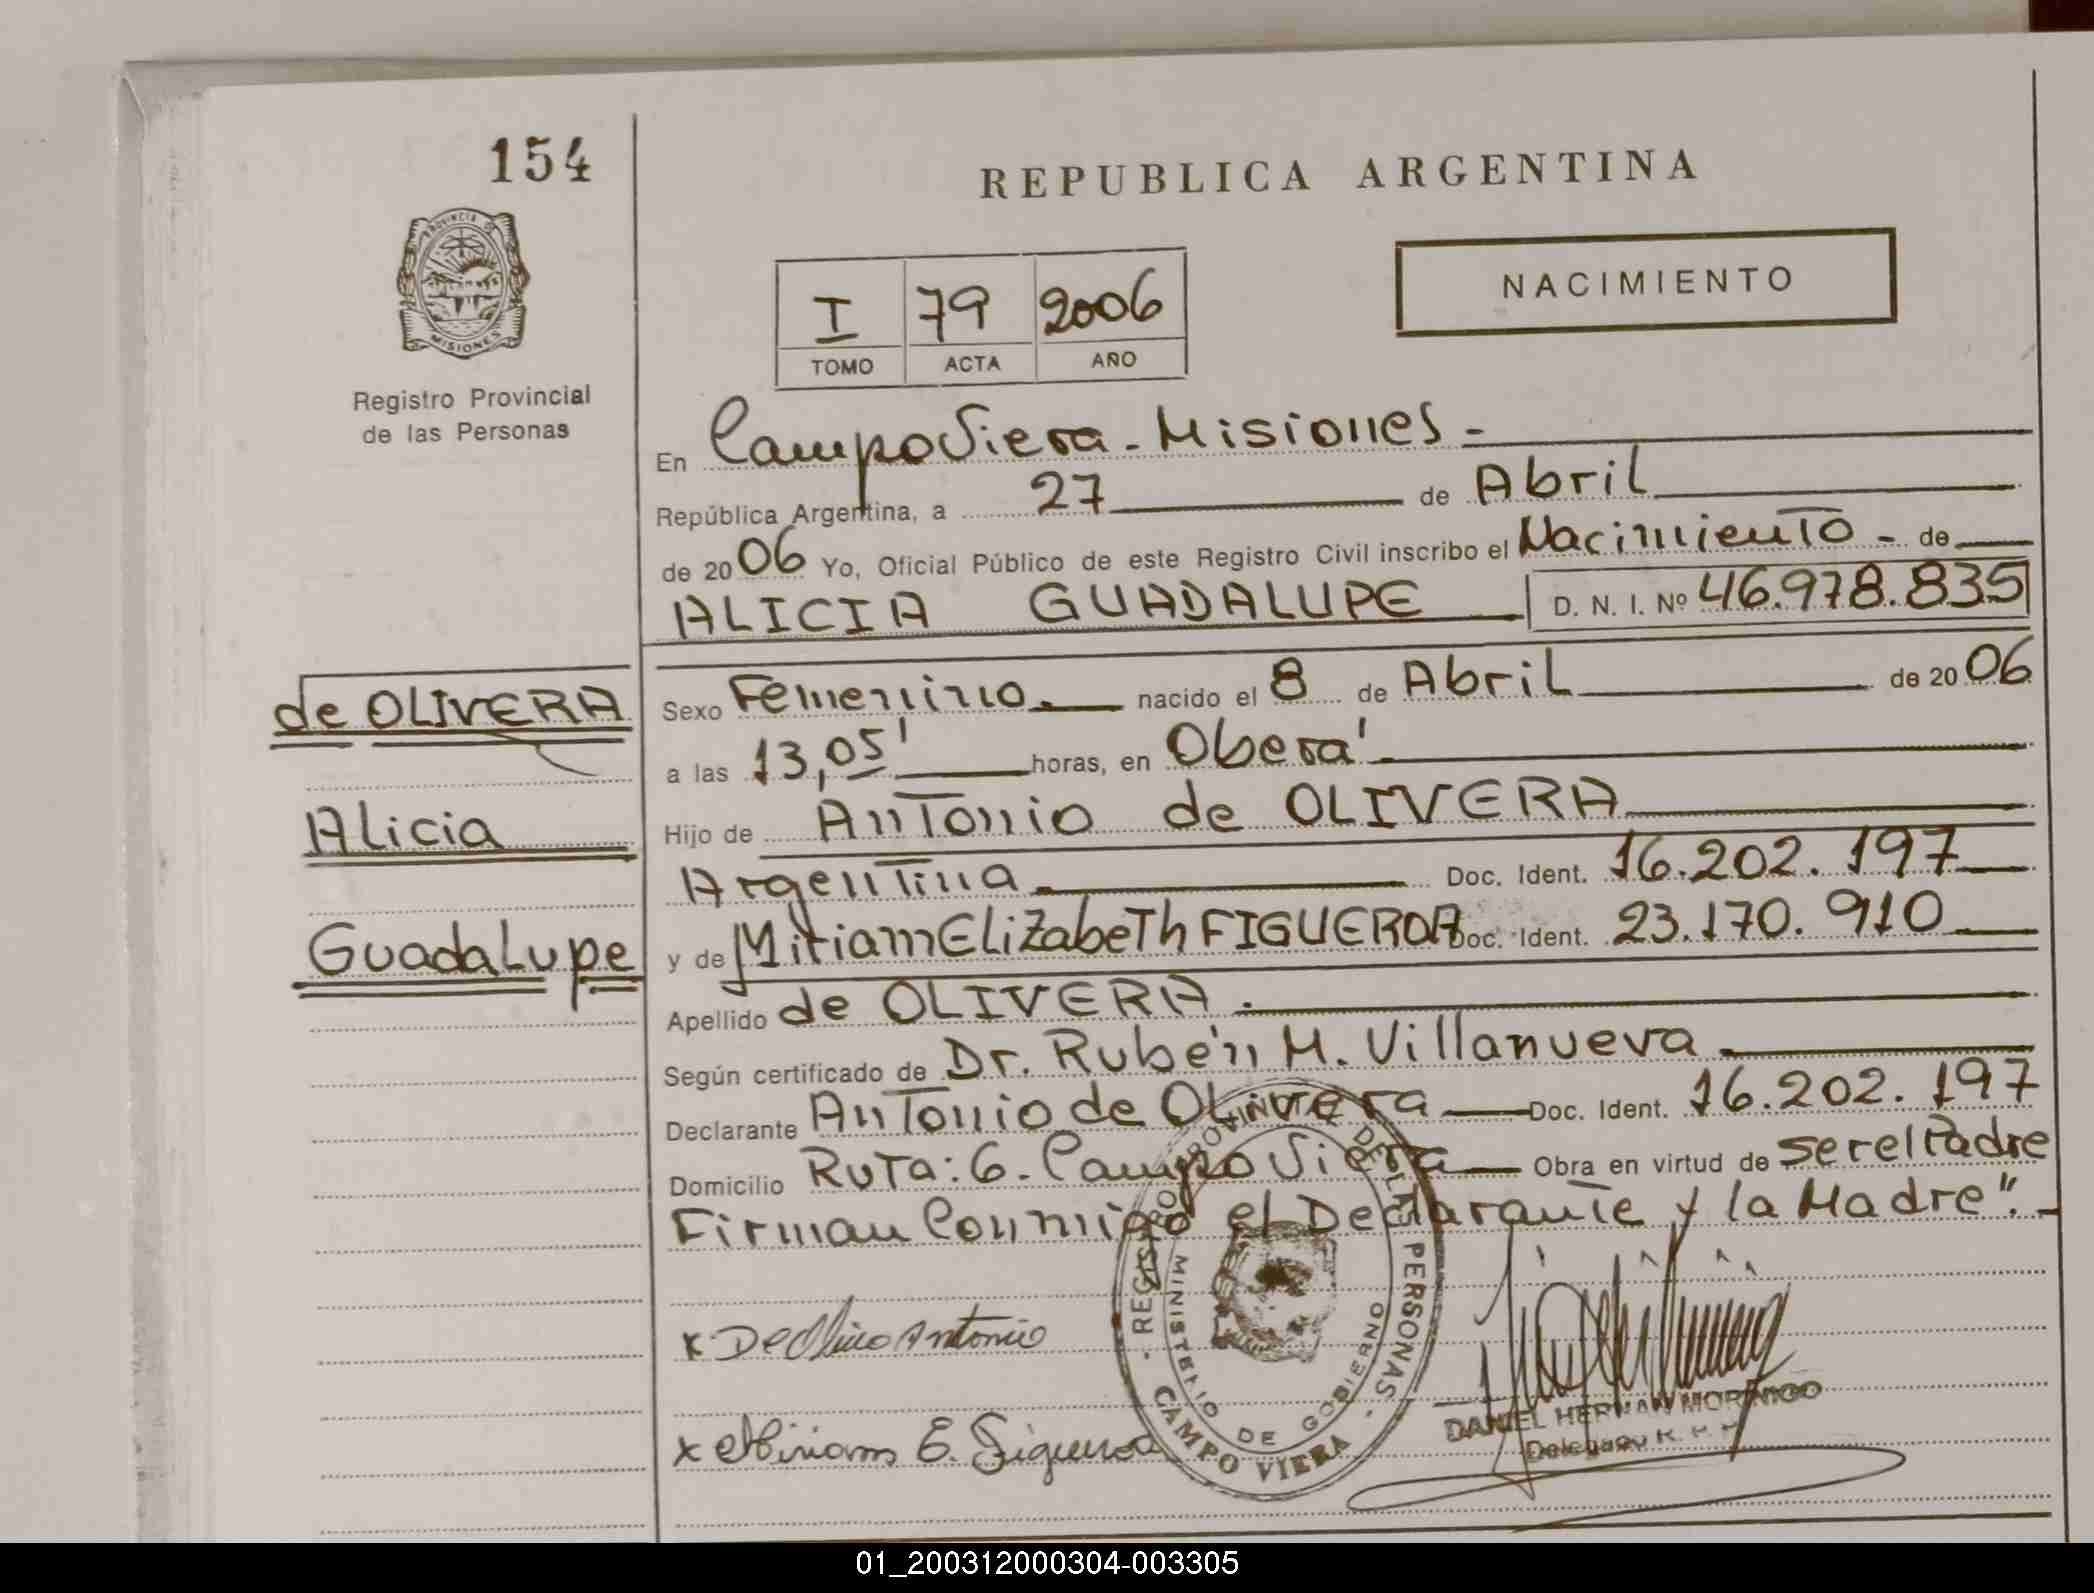 154
PROVINCIA DE
MISIONES
Registro Provincial
de las Personas
REPUBLICA ARGENTINA
NACIMIENTO
I 79 2006
TOMO ACTA AÑO
En Campo Viera - Misiones -
República Argentina, a 27 de Abril
de 2006 Yo, Oficial Público de este Registro Civil inscribo el Nacimiento - de
ALICIA GUADALUPE D. N. I. Nº 46.978.835
de OLIVERA
Alicia
Guadalupe
Sexo Femenino. nacido el 8 de Abril de 2006
a las 13,05' horas, en Oberá.
Hijo de Antonio de OLIVERA
Argentina. Doc. Ident. 16.202.197
y de Miriam Elizabeth FIGUEROA Doc. Ident. 23.170.910
Apellido de OLIVERA.
Según certificado de Dr. Rubén M. Villanueva.
Declarante Antonio de Olivera Doc. Ident. 16.202.197
Domicilio Ruta: 6. Campo Viera Obra en virtud de ser el Padre
Firman Conmigo el Declarante y la Madre". -
x De Antonio
x Miriam E. Figueroa
REGISTRO PROVINCIAL DE LAS PERSONAS
MINISTERIO DE GOBIERNO
CAMPO VIERA
DANIEL HERNAN MORINIGO
Delegado R. P. P.
01_200312000304-003305